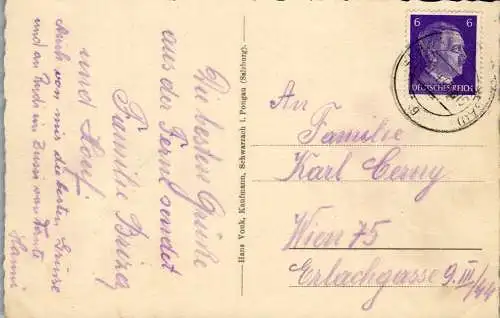 Die besten Grüße
aus der Ferne sendet
Familie
und
Auch von mir die besten Grüsse
und an Rudi ein Bussi von Tante
Hanni
Hans Vonk, Kaufmann, Schwarzach i. Pongau (Salzburg).
6 6
DEUTSCHES REICH
An
Familie
Karl Cerny
Wien 75
Erlachgasse 9.III/44